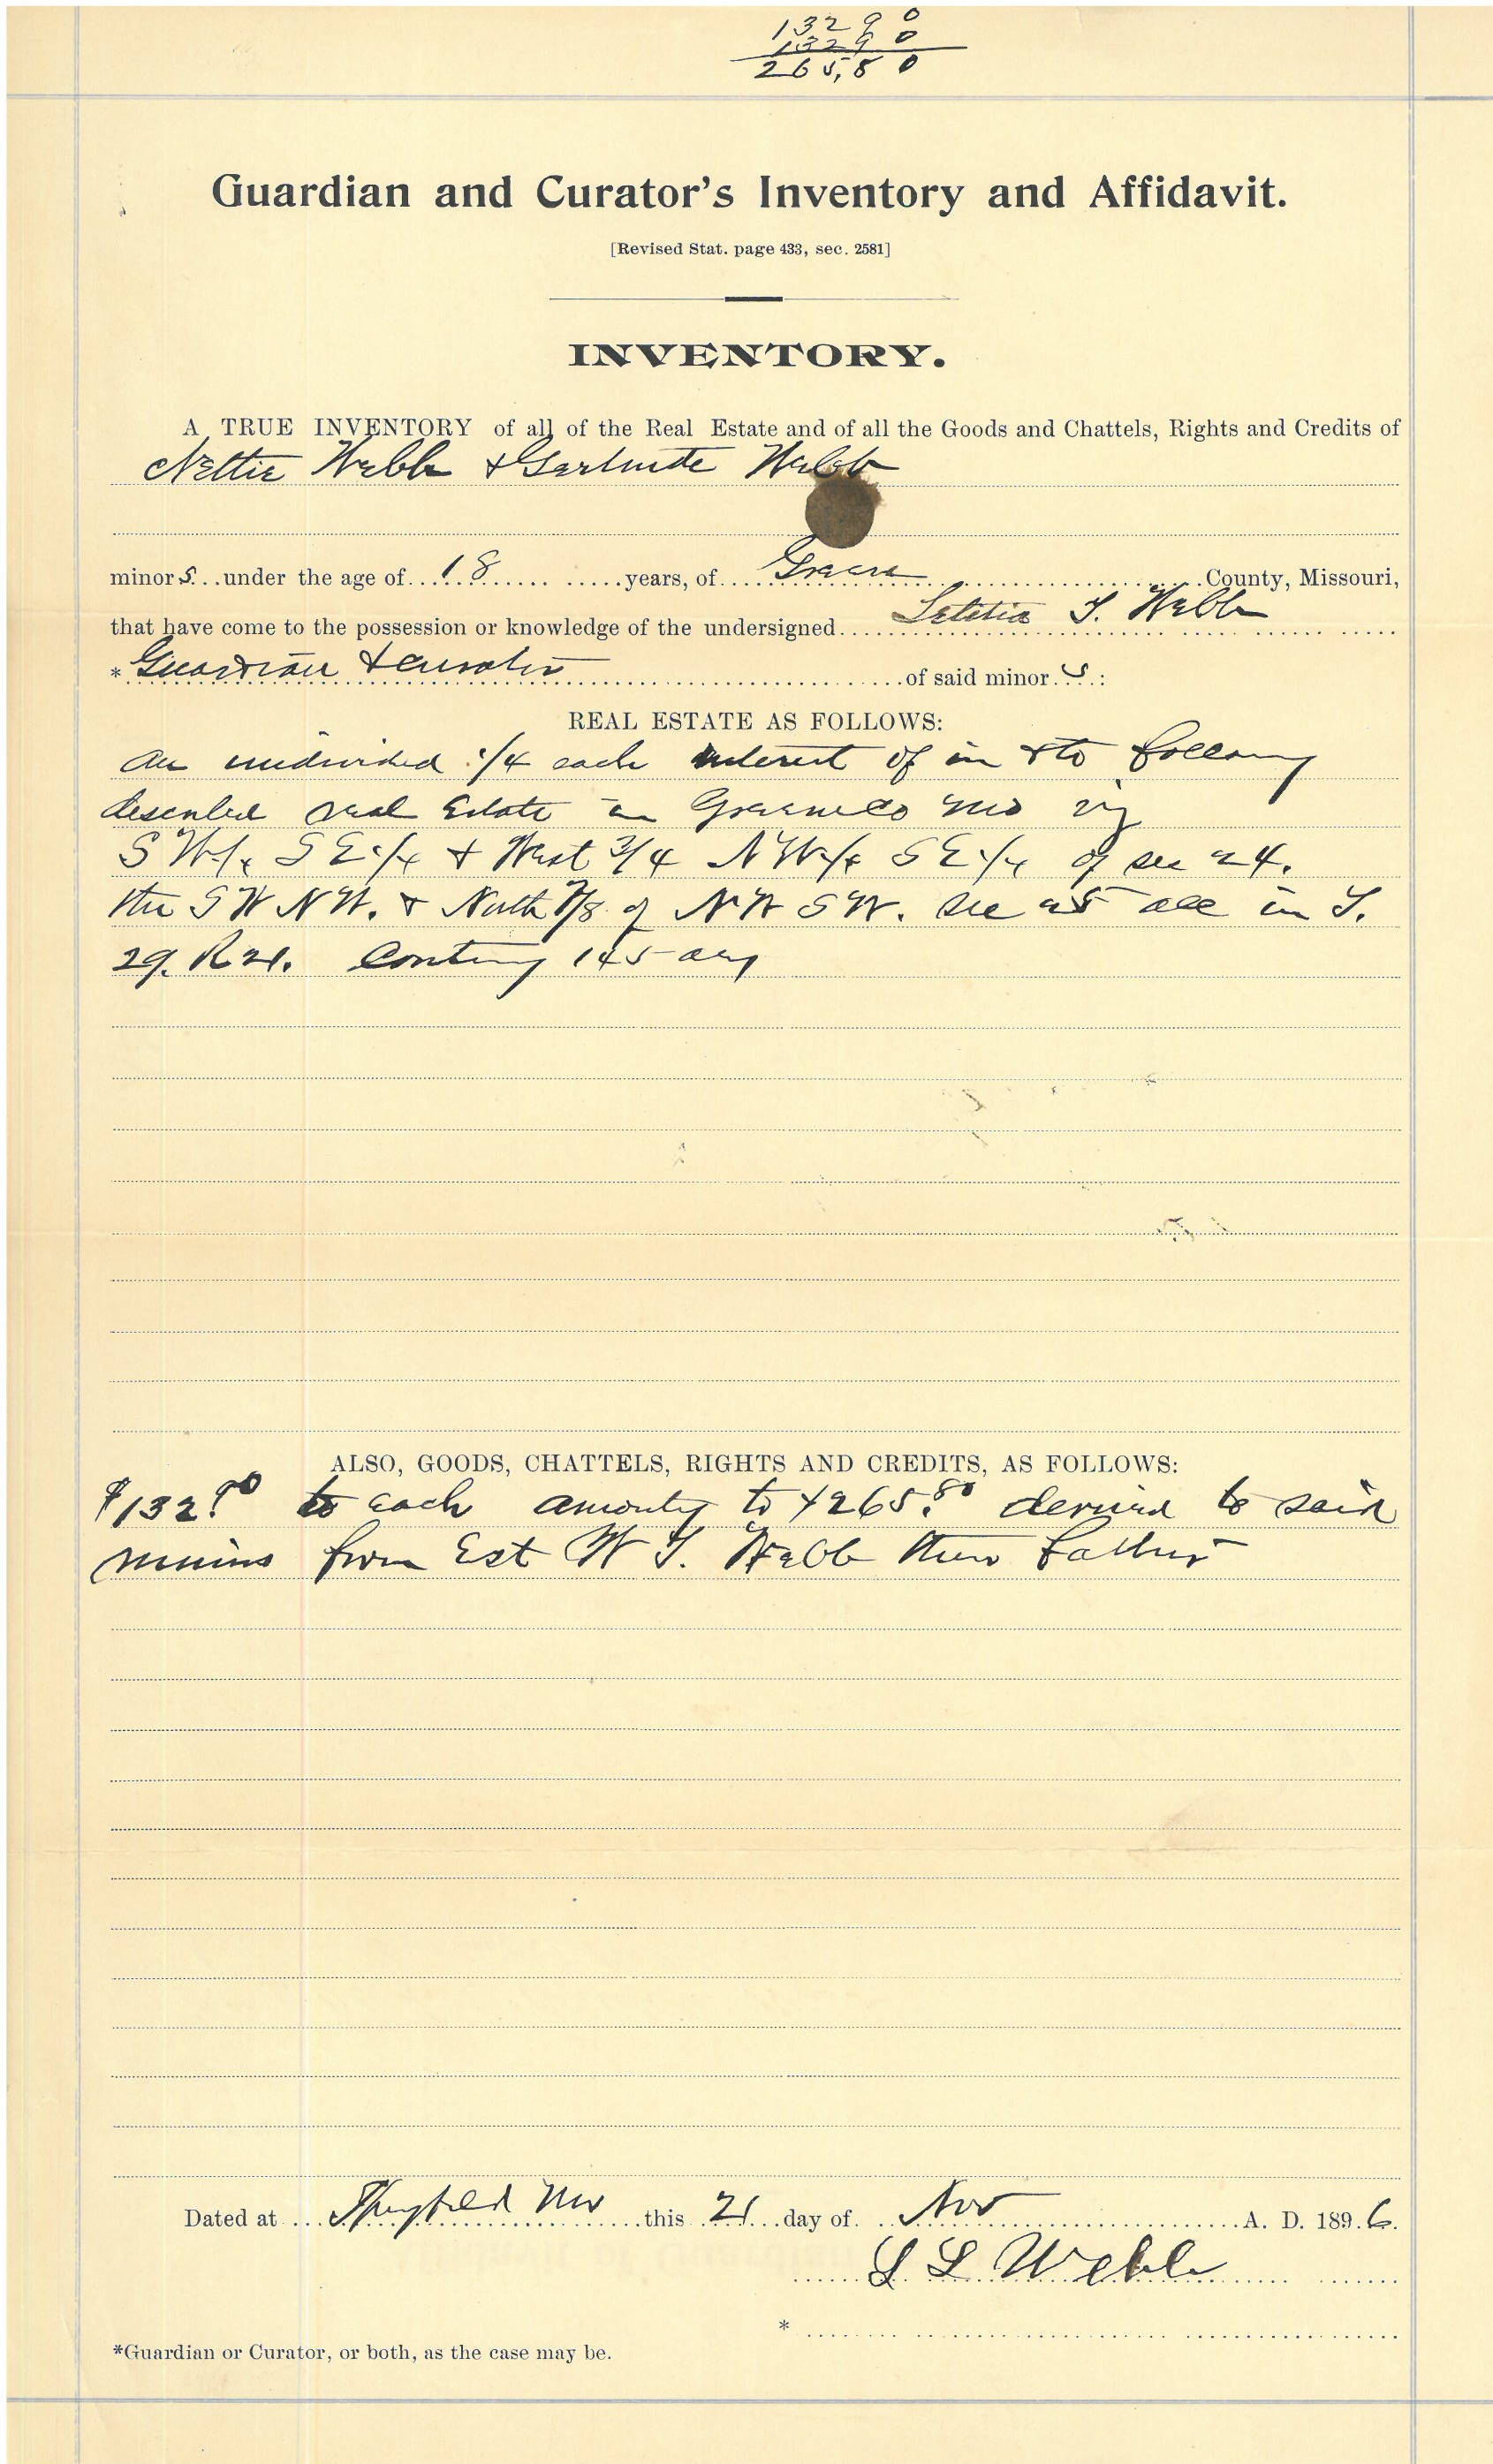 13290
13290
265,80
Guardian and Curator's Inventory and Affidavit.
[Revised Stat. page 433, sec. 2581]
INVENTORY.
A TRUE INVENTORY of all of the Real Estate and of all the Goods and Chattels, Rights and Credits of
Nettie Webb & Gertrude Webb
minors under the age of 18 years, of Greene County, Missouri,
that have come to the possession or knowledge of the undersigned Letitia T. Webb
*Guardian & curator of said minors:
REAL ESTATE AS FOLLOWS:
An undivided 1/4 each interest of in & to following
described real Estate in Greene co Mo viz
SW1/4 SE1/4 & West 3/4 NW1/4 SE1/4 of sec 24.
the SW NW. & North 7/8 of NW SW. sec 25 all in T.
29. R 21. Containg 145 acrs
ALSO, GOODS, CHATTELS, RIGHTS AND CREDITS, AS FOLLOWS:
$132.90 to each amounting to $265.80 derived to said
minors from Est W T. Webb their father
Dated at Springfield Mo this 21 day of Nov A. D. 1896.
L L Webb
*
*Guardian or Curator, or both, as the case may be.